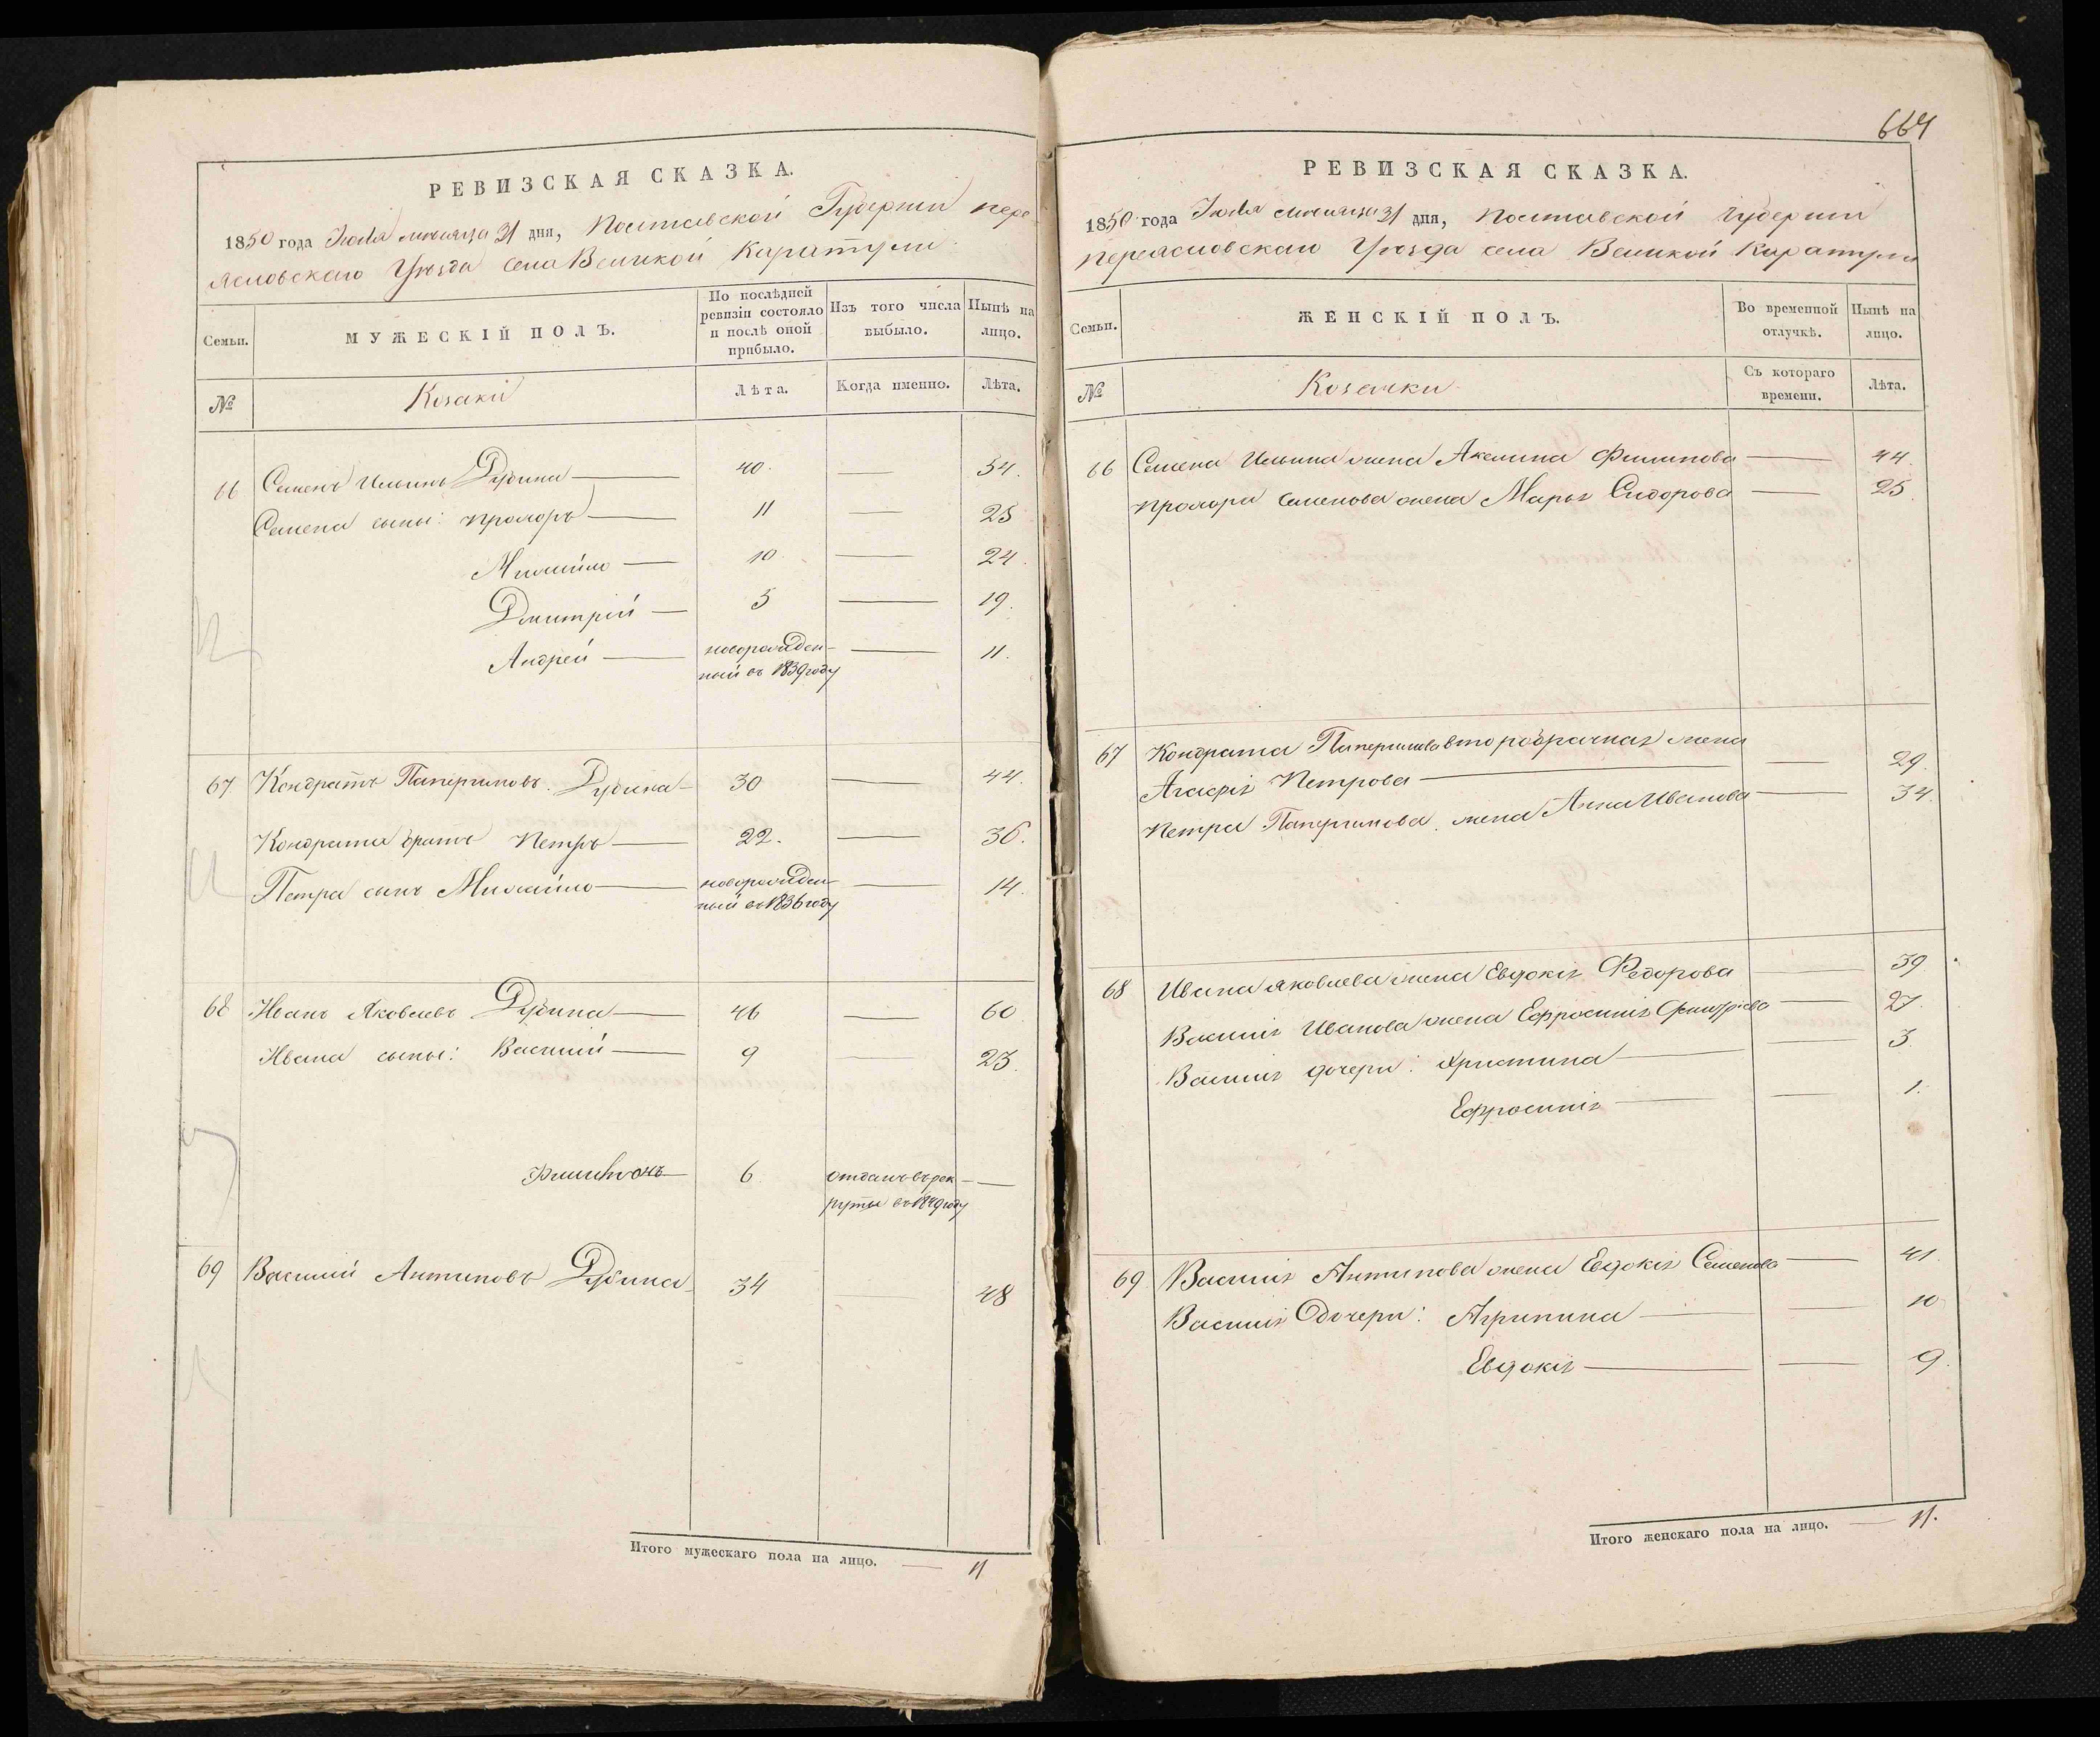 РЕВИЗСКАЯ СКАЗКА.
1850 года Іюля месяца 31 дня, Полтавской Губерніи Пере
яславскаго Уѣзда села Великой Каратули
Семьи.
МУЖЕСКІЙ ПОЛЪ.
По послѣдней ревизіи состояло и послѣ оной прибыло.
Изъ того числа выбыло.
Нынѣ на лицо.
№
Козаки
Лѣта.
Когда именно.
Лѣта.
66 Семенъ Ильинъ Дубина 40. 54.
Семена сыны: Прохоръ 11 25
Михайло 10 24.
Дмитрій 5 19.
Андрей новорожден- 11.
ный въ 1839 году
67 Кондратъ Дубина 30 44.
Кондрата братъ Петръ 22. 36.
Петра сынъ Михайло новорожден- 14.
ный въ 1836 году
68 Иванъ Яковлевъ Дубина 46 60
Ивана сыны: Василій 9 23.
6 отданъ въ рек-
руты въ 1849 году
69 Василій Антиповъ Дубина 34 48
Итого мужескаго пола на лицо. 11
664
РЕВИЗСКАЯ СКАЗКА.
1850 года Іюля месяца 31 дня, Полтавской Губерніи
Переясловскаго Уѣзда села Великой Каратули
Семьи.
ЖЕНСКІЙ ПОЛЪ.
Во временной отлучкѣ.
Нынѣ на лицо.
№
Козачки
Съ котораго времени.
Лѣта.
66 Семена Ильина жена Акелина Филипова 44.
Прохора Семенова жена Марья Сидорова 25.
67 Кондрата второбрачная жена
Агафія Петрова 29.
Петра жена Анна Иванова 34.
68 Ивана Яковлева жена Евдокія Федорова 39
Василія Иванова жена Ефросинія 27
Василія дочери: Христина 3.
Ефросинія 1.
69 Василія Антипова жена Евдокія Семенова 41.
Василія дочери: Агрипина 10
Евдокія 9.
Итого женскаго пола на лицо. 11.